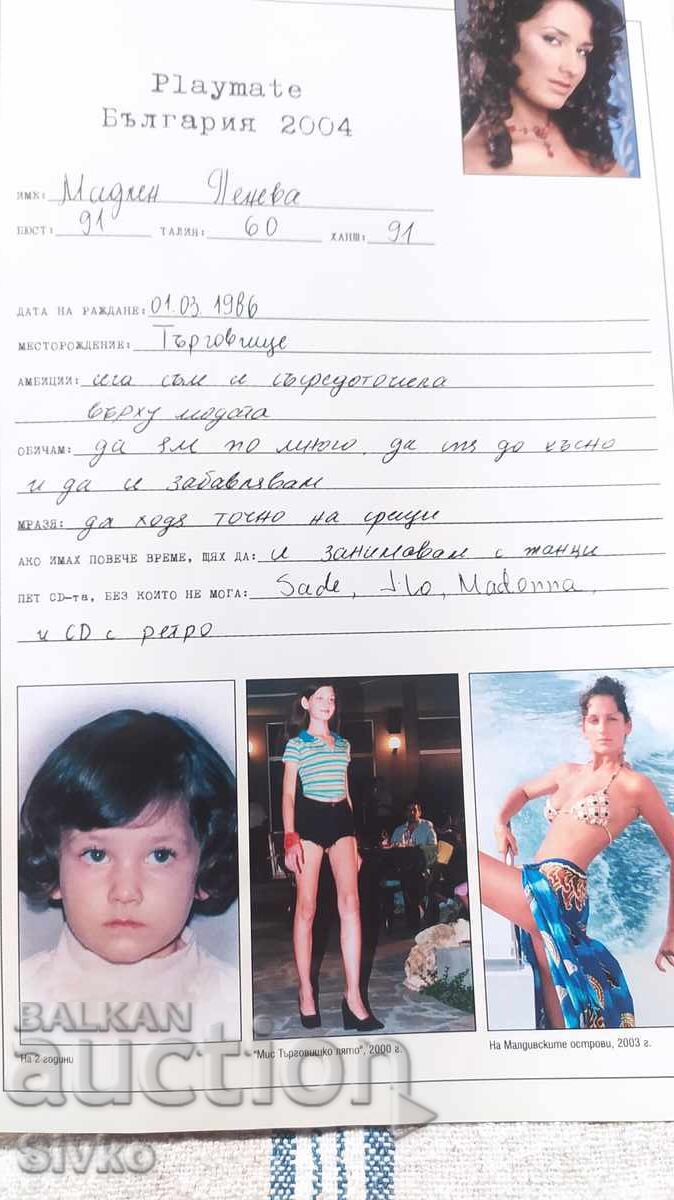 Playmate
България 2004
ИМЕ: Мадлен Пенева
БЮСТ: 91 ТАЛИЯ: 60 ХАНШ: 91
ДАТА НА РАЖДАНЕ: 01.03.1986
МЕСТОРОЖДЕНИЕ: Търговище
АМБИЦИИ: сега съм се съсредоточила
върху модата
ОБИЧАМ: да ям по много, да спя до късно
и да се забавлявам
МРАЗЯ: да ходя точно на срещи
АКО ИМАХ ПОВЕЧЕ ВРЕМЕ, ЩЯХ ДА: се занимавам с танци
ПЕТ CD-ТА, БЕЗ КОИТО НЕ МОГА: Sade, J.Lo, Madonna,
и CD с ретро
На 2 години
"Мис Търговищко лято", 2000 г.
На Малдивските острови, 2003 г.
BALKAN
auction
Sivko